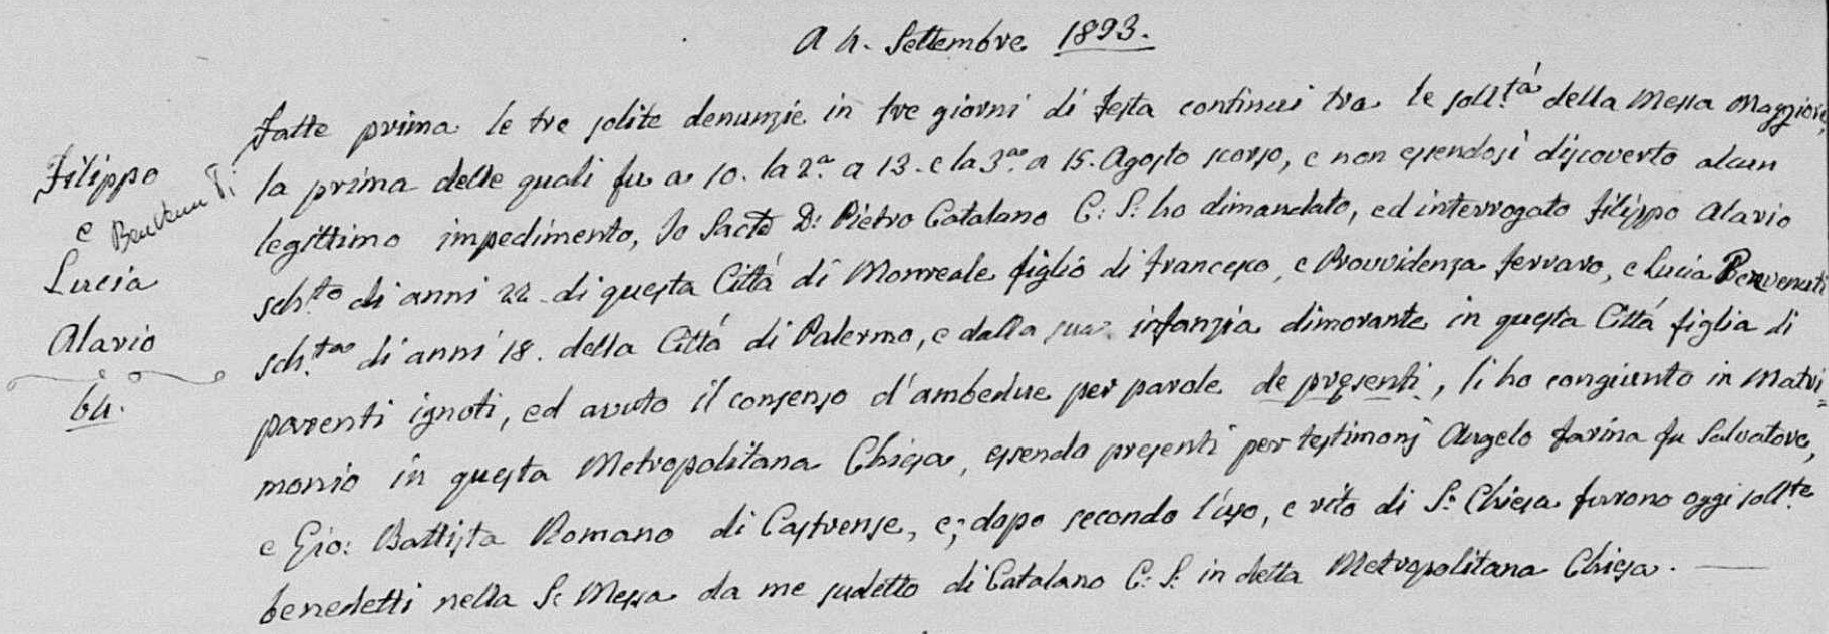 A 4. Settembre 1893.
Filippo
e Benvenuti
Lucia
Alavio
64.
Fatte prima le tre solite denunzie in tre giorni di Festa continui tra le soll.tà della Messa Maggiore,
la prima delle quali fu a 10. la 2.a a 13. e la 3.a a 15. Agosto scorso, e non essendosi discoverto alcun
legittimo impedimento, Io Sacte D: Pietro Catalano C: S: ho dimandato, ed interrogato Filippo Alavio
sch.to di anni 22 di questa Città di Monreale figlio di Francesco, e Provvidenza Ferraro, e Lucia Benvenuti
sch.ta di anni 18. della Città di Palermo, e dalla sua infanzia dimorante in questa Città figlia di
parenti ignoti, ed avuto il consenso d'ambedue per parole de presenti, li ho congiunto in Matri=
monio in questa Metropolitana Chiesa, essendo presenti per testimonj Angelo Farina fu Salvatore,
e Gio: Battista Romano di Castrense, e; dopo secondo l'uso, e rito di S.a Chiesa furono oggi soll.te
benedetti nella S. Messa da me sudetto di Catalano C: S: in detta Metropolitana Chiesa.